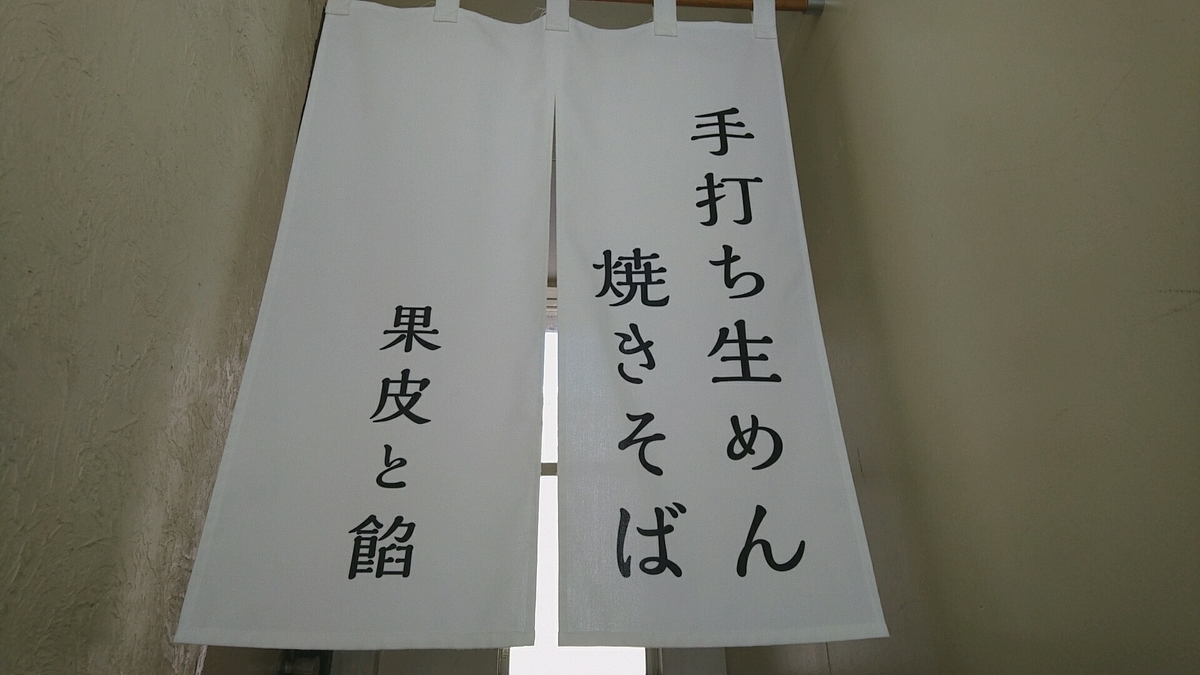 手打ち生めん
焼きそば
果皮と餡